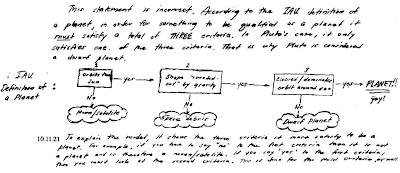 This statement is incorrect. According to the IAU definition of
a planet, in order for something to be qualified as a planet it
must satisfy a total of THREE criteria. In Pluto's case, it only
satisfies one of the three criteria. That is why Pluto is considered
a dwarf planet.
: IAU
Definition of
a Planet
1
orbits the
sun
yes
2
Shape "rounded
out" by gravity
yes
3
Cleared/dominates
orbit around sun
yes
PLANET!!
yay!
No
No
No
Moon/satellite
Space debris
Dwarf Planet
10.11.21 To explain the model, it shows the three criteria it must satisfy to be a
planet. For example, if you have to say "no" to the first criteria then it is not
a planet and is therefore a moon/satellite. If you say "yes" to the first criteria,
then you must look at the second criteria. This is done for the third criteria, as well.